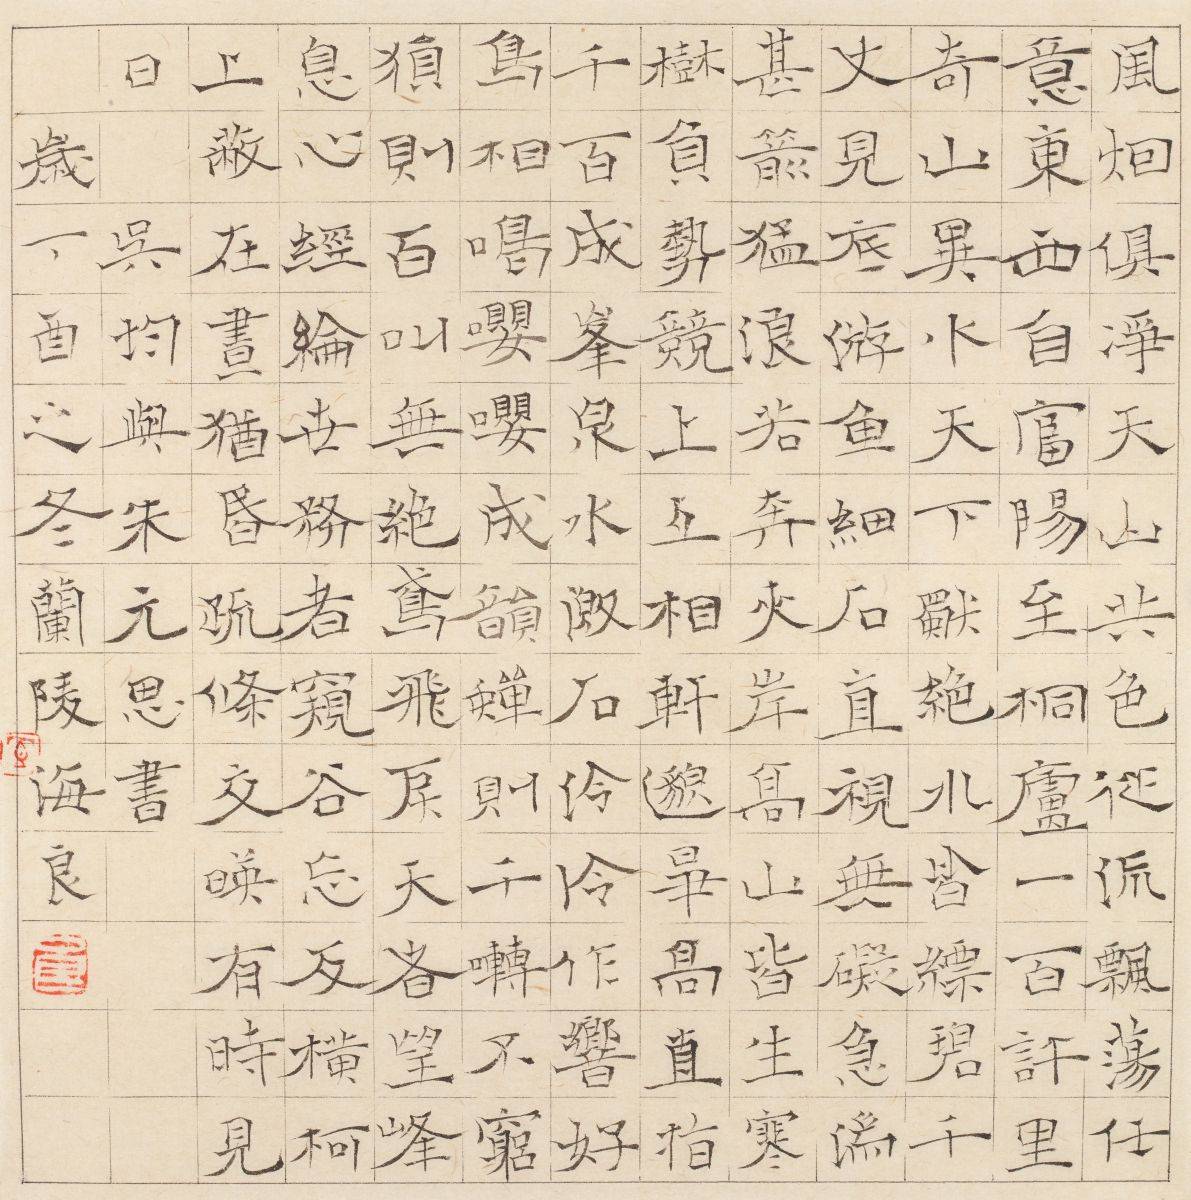 風烟俱淨天山共色從流飄蕩任
意東西自富陽至桐廬一百許里
奇山異水天下獨絕水皆縹碧千
丈見底游魚細石直視無礙急湍
甚箭猛浪若奔夾岸高山皆生寒
樹負勢競上互相軒邈畢高直指
千百成峯泉水激石泠泠作響好
鳥相鳴嚶嚶成韻蟬則千囀不窮
猨則百叫無絕鳶飛戾天者望峰
息心經綸世務者窺谷忘反橫柯
上蔽在晝猶昏疏條交暎有時見
日 吳均與朱元思書
歲丁酉之冬蘭陵海良